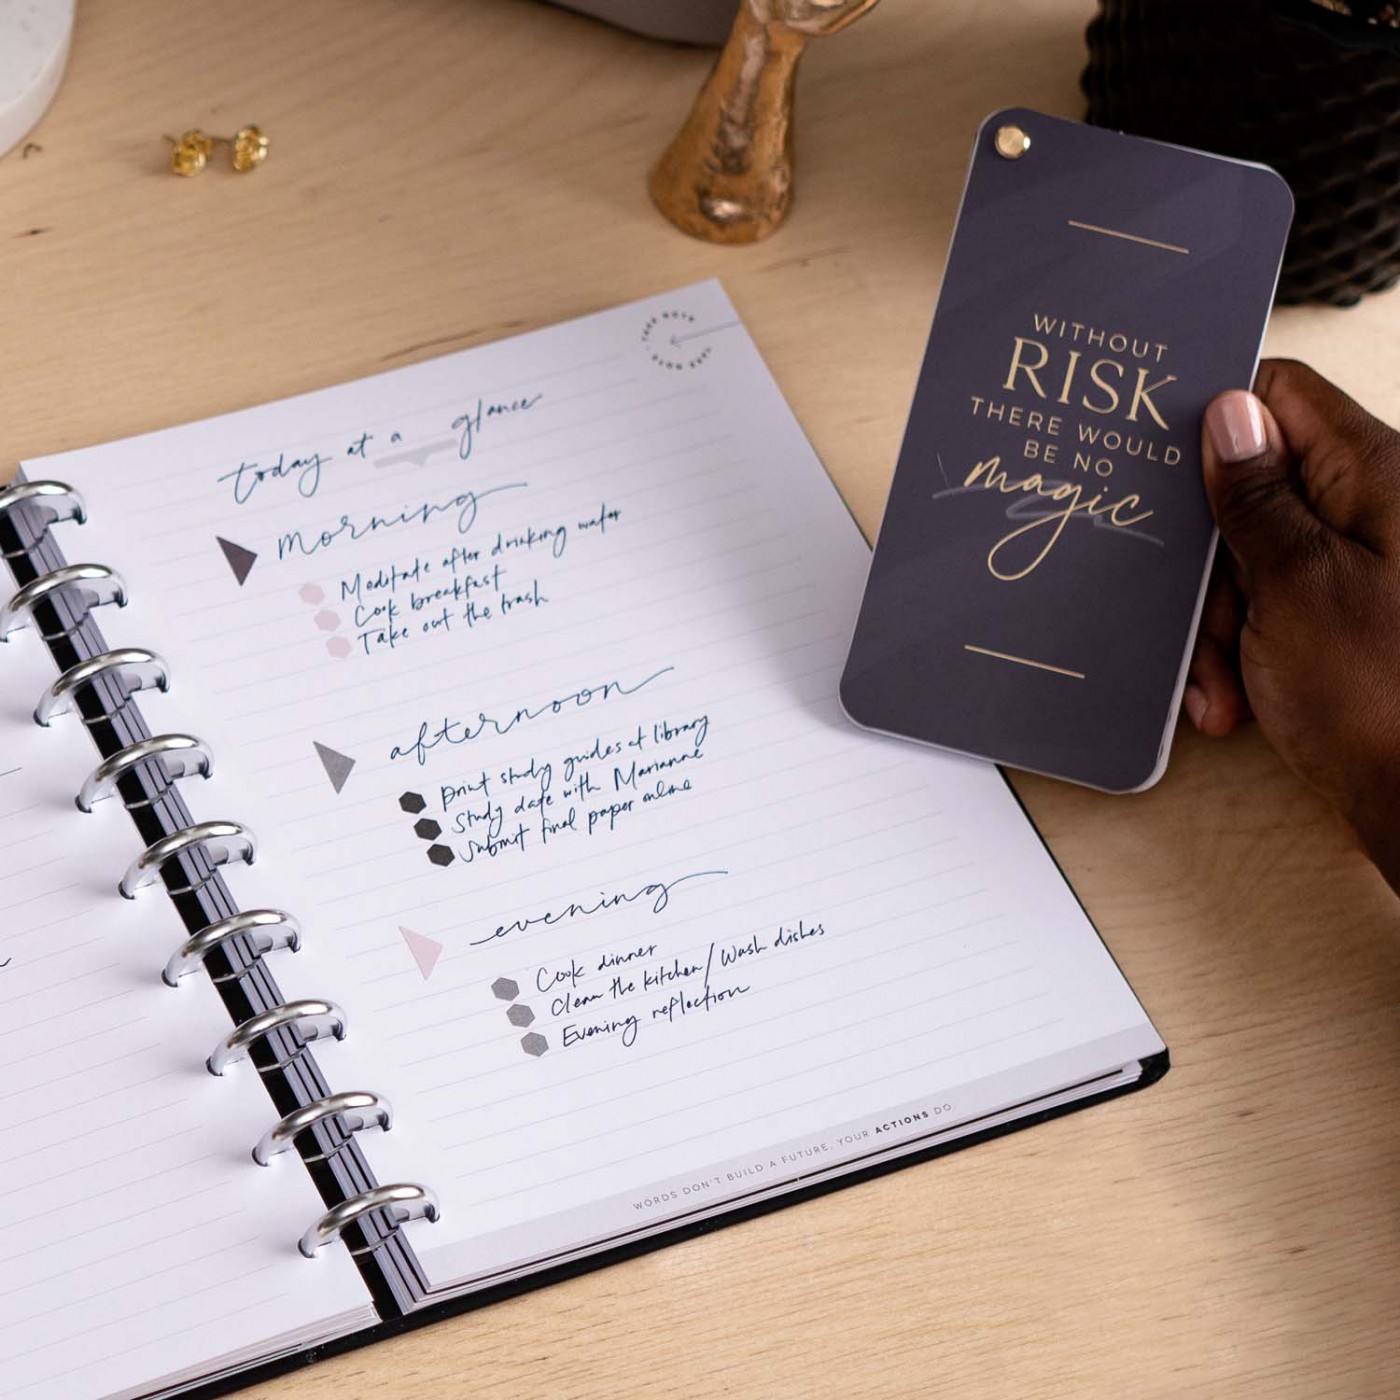 today at a glance
morning
Meditate after drinking water
Cook breakfast
Take out the trash
afternoon
print study guides at library
Study date with Marianne
Submit final paper online
evening
Cook dinner
Clean the kitchen/Wash dishes
Evening reflection
WORDS DON'T BUILD A FUTURE. YOUR ACTIONS DO.
WITHOUT
RISK
THERE WOULD
BE NO
magic